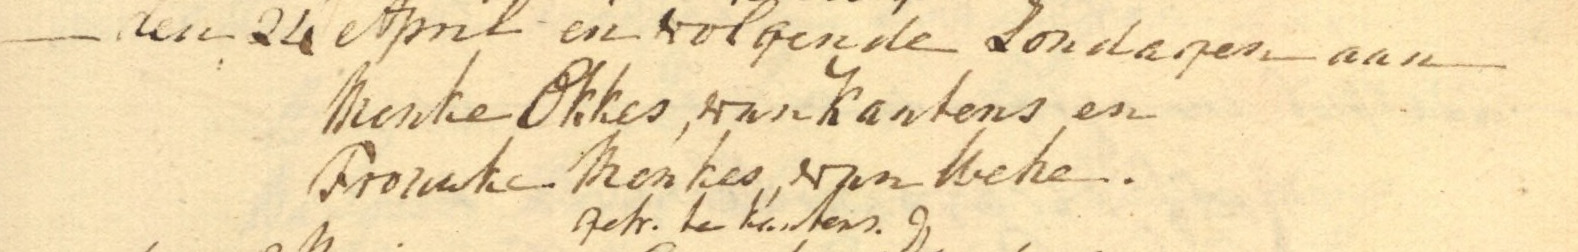 den 24 April en volgende Zondagen aan
Menke Okkes, van Kantens en
Trouwke Menkes, van Uske.
getr. te Kantens.